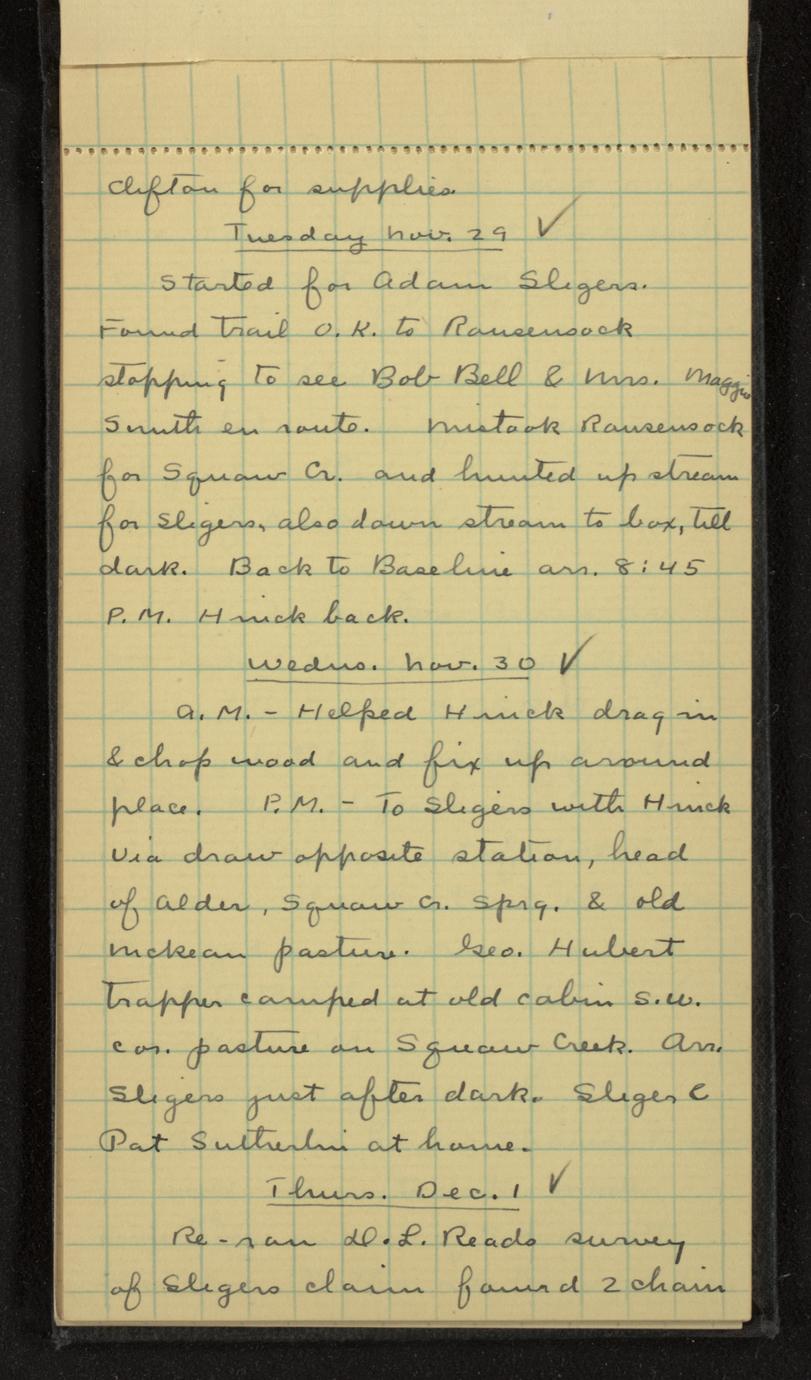 Clifton for supplies.
Tuesday Nov. 29 ✓
Started for Adam Sligers.
Found trail O.K. to Rousensock
stopping to see Bob Bell & Mrs. Maggie
Smith en route. Mistook Rousensock
for Squaw Cr. and hunted up stream
for Sligers, also down stream to box, till
dark. Back to Baseline arr. 8:45
P.M. Hinck back.
Wednes. Nov. 30 ✓
A.M. - Helped Hinck drag in
& chop wood and fix up around
place. P.M. - To Sligers with Hinck
via draw opposite station, head
of Alder, Squaw Cr. Sprg. & old
McKean pasture. Geo. Hubert
trapper camped at old cabin S.W.
cor. pasture on Squaw Creek. Arr.
Sligers just after dark. Sliger &
Pat Sutherlin at home.
Thurs. Dec. 1 ✓
Re-ran D.L. Reads survey
of Sligers claim found 2 chain